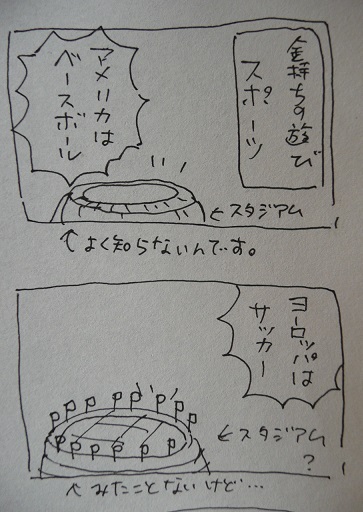 金持ちの遊び
スポーツ
アメリカは
ベースボール
←スタジアム
↑よく知らないんです。
ヨーロッパは
サッカー
←スタジアム
?
↑みたことないけど…